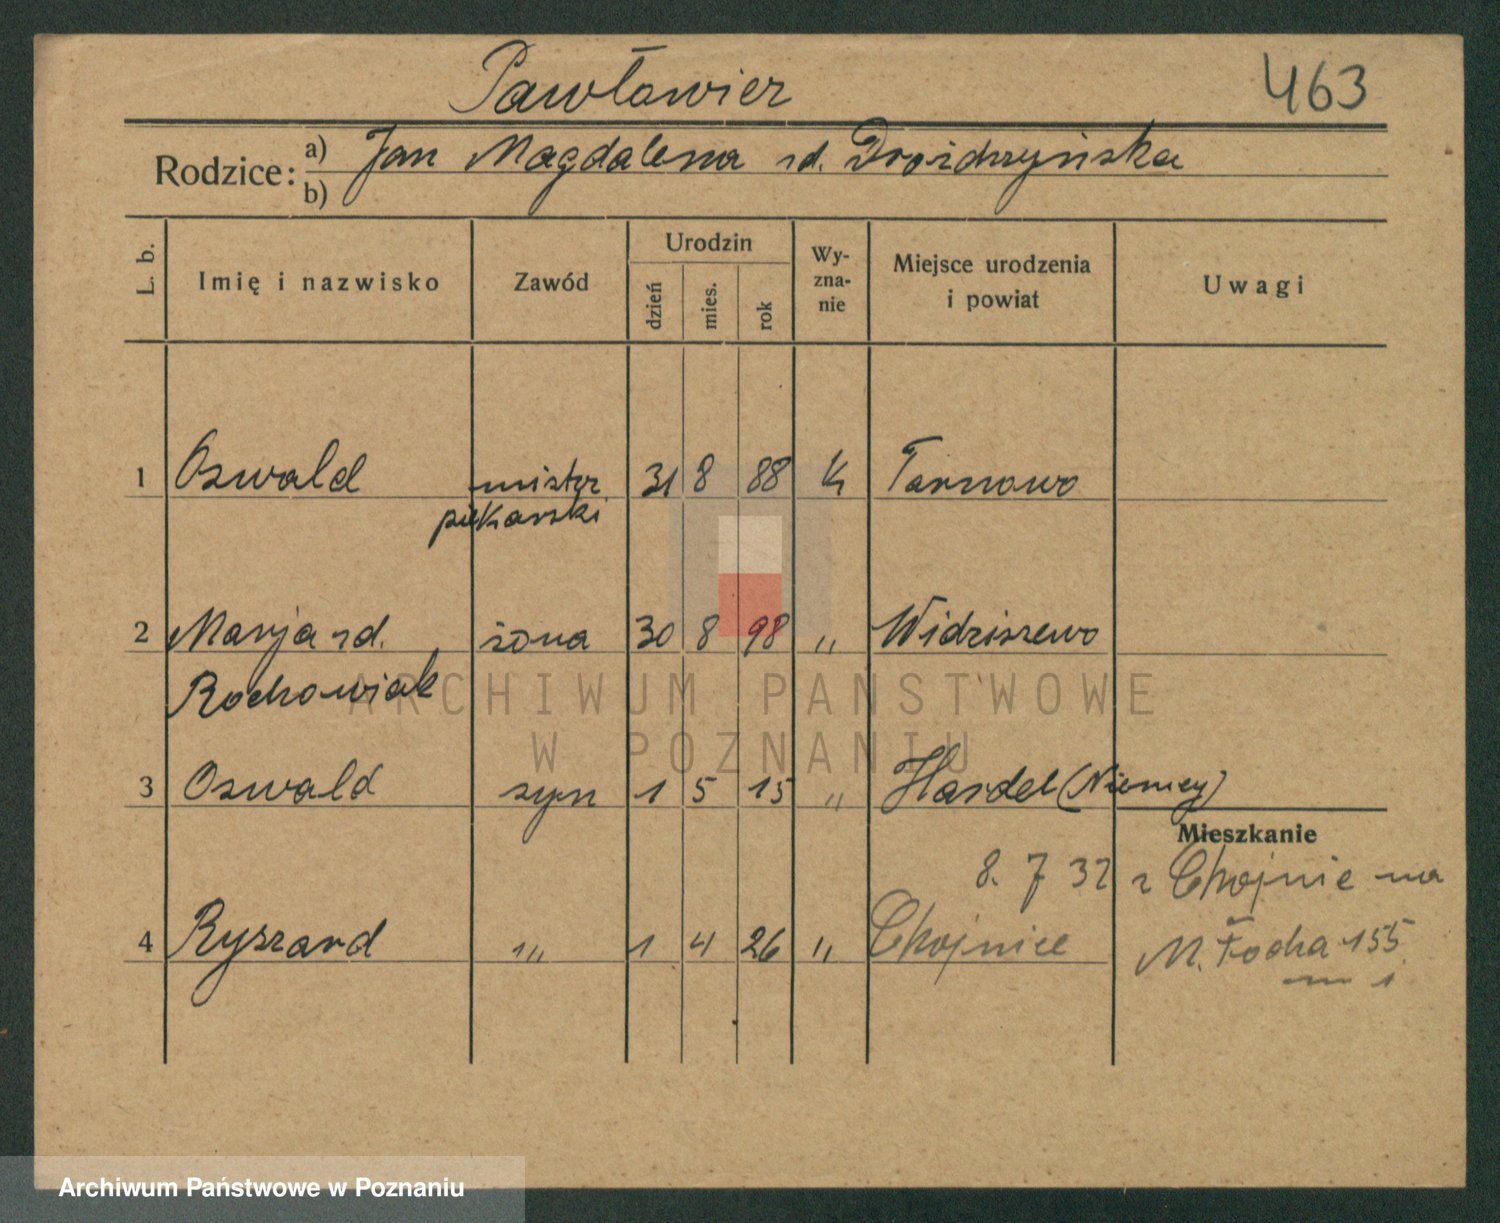 Pawłowicz
463
Rodzice: a) Jan Magdalena rd. Drożdżyńska
b)
L. b. Imię i nazwisko Zawód Urodzin dzień mies. rok Wy-zna-nie Miejsce urodzenia i powiat Uwagi
1 Oswald mistrz 31 8 88 k Tarnowo
piekarski
2 Marja rd. żona 30 8 98 " Widziszewo
Rochowiak
3 Oswald syn 1 5 15 " (Niemcy)
Mieszkanie
8. 7 32 z Chojnic na
4 Ryszard " 1 4 26 " Chojnice M. Focha 155
m 1
ARCHIWUM PAŃSTWOWE
W POZNANIU
Archiwum Państwowe w Poznaniu